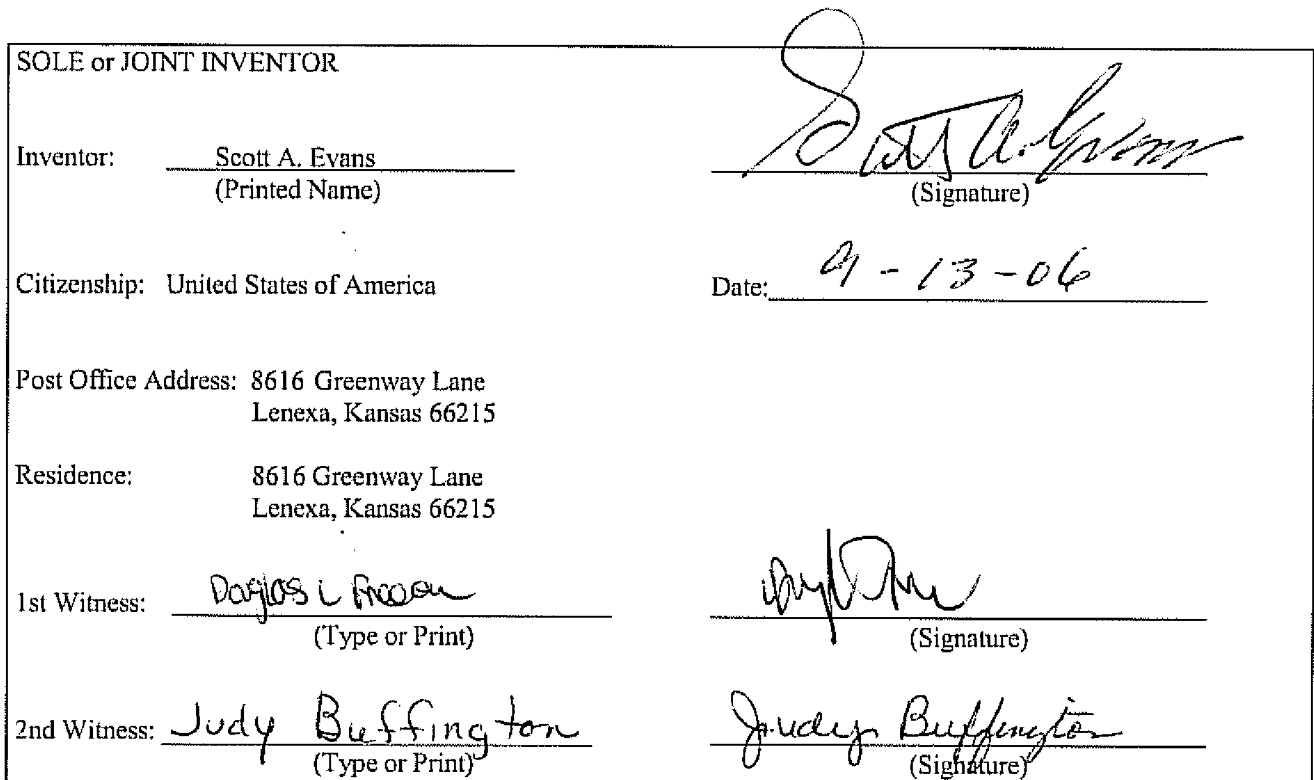 SOLE or JOINT INVENTOR
Inventor: Scott A. Evans Scott A. Evans
(Printed Name) (Signature)
Citizenship: United States of America Date: 9-13-06
Post Office Address: 8616 Greenway Lane
Lenexa, Kansas 66215
Residence: 8616 Greenway Lane
Lenexa, Kansas 66215
1st Witness: Douglas L
(Type or Print) (Signature)
2nd Witness: Judy Buffington Judy Buffington
(Type or Print) (Signature)